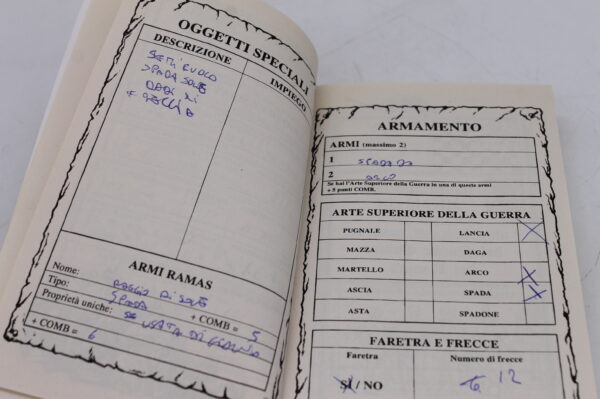 OGGETTI SPECIALI
DESCRIZIONE
IMPIEGO
SPADA SOLE
DADI DI
ARMI RAMAS
Nome: RAGGIO DI SOLE
Tipo: SPADA + COMB = 5
Proprietà uniche: SE USATA DI GIORNO
+ COMB = 6
ARMAMENTO
ARMI (massimo 2)
1 SPADA
2 ARCO
Se hai l'Arte Superiore della Guerra in una di queste armi
+ 5 punti COMB.
ARTE SUPERIORE DELLA GUERRA
PUGNALE LANCIA X
MAZZA DAGA
MARTELLO ARCO X
ASCIA SPADA X
ASTA SPADONE
FARETRA E FRECCE
Faretra Numero di frecce
SÌ / NO 12